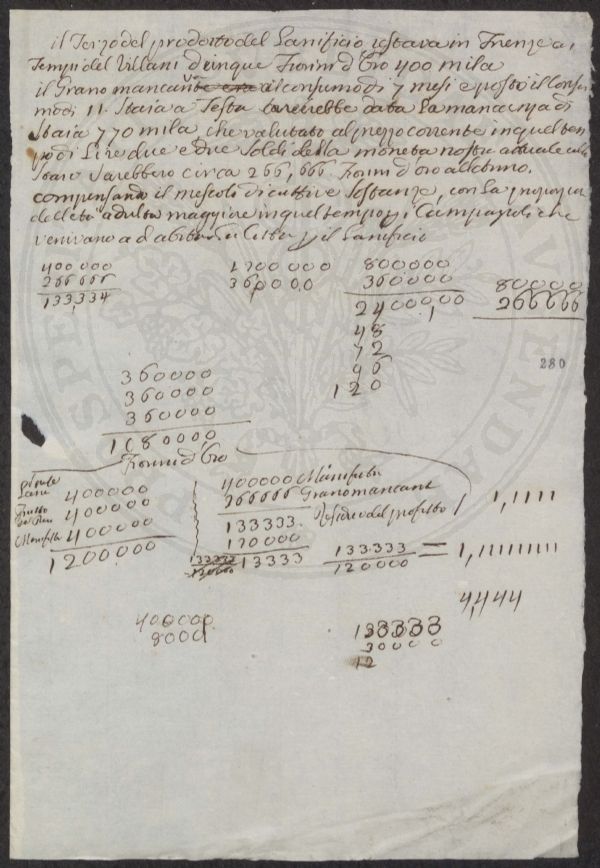 il Terzo del prodotto del Lanificio restava in Firenze a i
Tempi del Villani Dunque Fiorini d'Oro 400 mila
il Grano mancante al consumo di 7 mesi e posto il Consu
mo di 11. Staia a Testa sarebbe data la mancanza di
Staia 770 mila, che valutato al prezzo corrente in quel tem
po di Lire due e due Soldi della moneta nostra attuale
Staio sarebbero circa 266,666. Fiorini d'oro
compensando il mescolo di cattive sostanze, con la
dell'età adulta maggiore in quel tempo, i Campagnoli che
venivano ad abitar la Citta il Lanificio
400000
266666
133,334
1200000
360000
800000
360000
2400000
48
72
96
120
80000
266666
280
360000
360000
360000
1080000
Fiorini d'Oro
Lana 400000
400000
Manifatt 400000
1200000
400000 Manifatta
266666 Grano mancant
133333. Residuo del profitto
120000
13333
133333
120000
133333
120000
= 1,11111111
1,1111
4,444
400000
8000
133333
30000
12